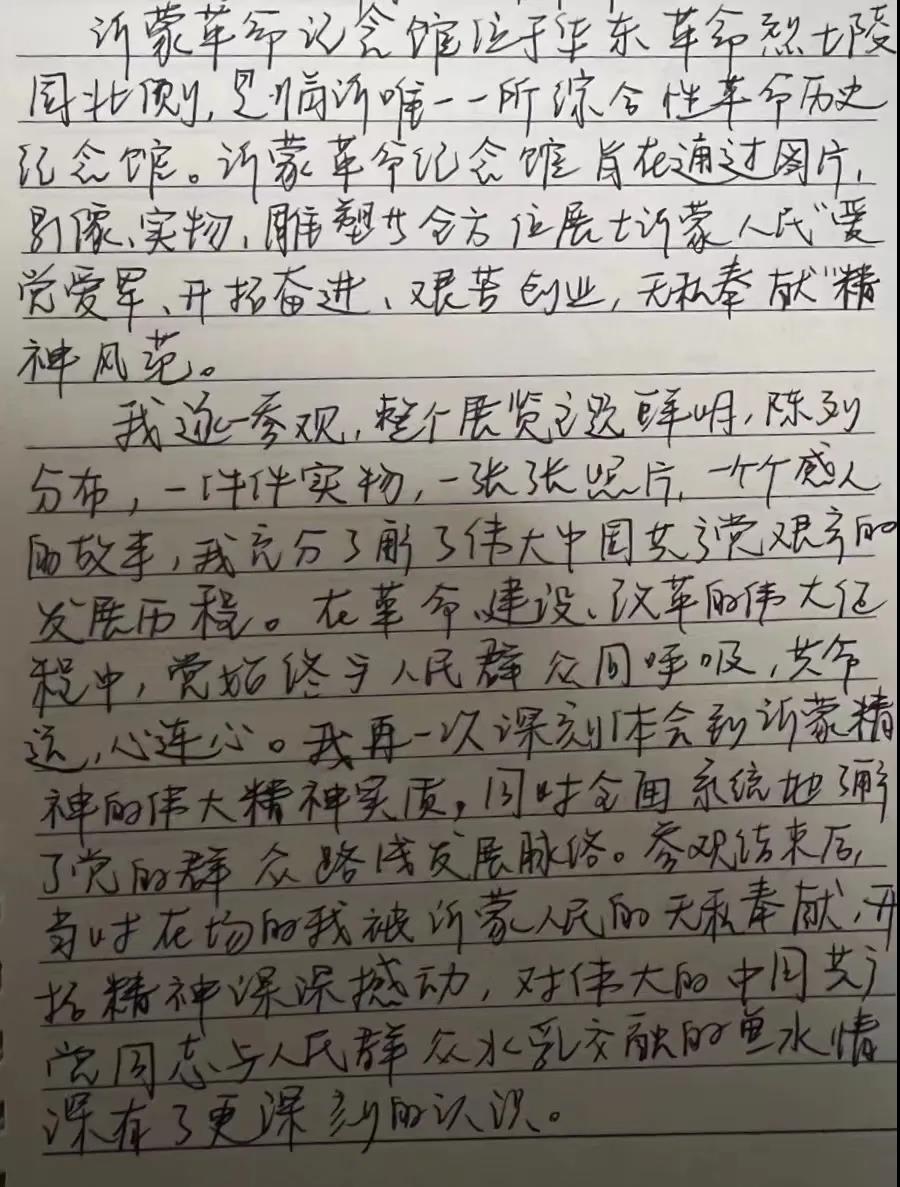 沂蒙革命纪念馆位于华东革命烈士陵
园北侧，是临沂唯一一所综合性革命历史
纪念馆。沂蒙革命纪念馆旨在通过图片、
影像、实物、雕塑等全方位展士沂蒙人民“爱
党爱军、开拓奋进、艰苦创业，无私奉献”精
神风范。
我逐一参观，整个展览主题鲜明，陈列
分布，一件件实物，一张张照片，一个个感人
的故事，我充分了解了伟大中国共产党艰辛的
发展历程。在革命、建设、改革的伟大征
程中，党始终与人民群众同呼吸，共命
运，心连心。我再一次深刻体会到沂蒙精
神的伟大精神实质，同时全面系统地了解
了党的群众路线发展脉络。参观结束后，
当时在场的我被沂蒙人民的无私奉献，开
拓精神深深撼动，对伟大的中国共产
党同志与人民群众水乳交融的鱼水情
深有了更深刻的认识。